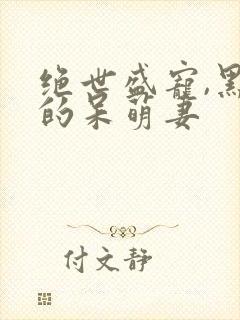 绝世盛宠,黑
的呆萌妻
付文静